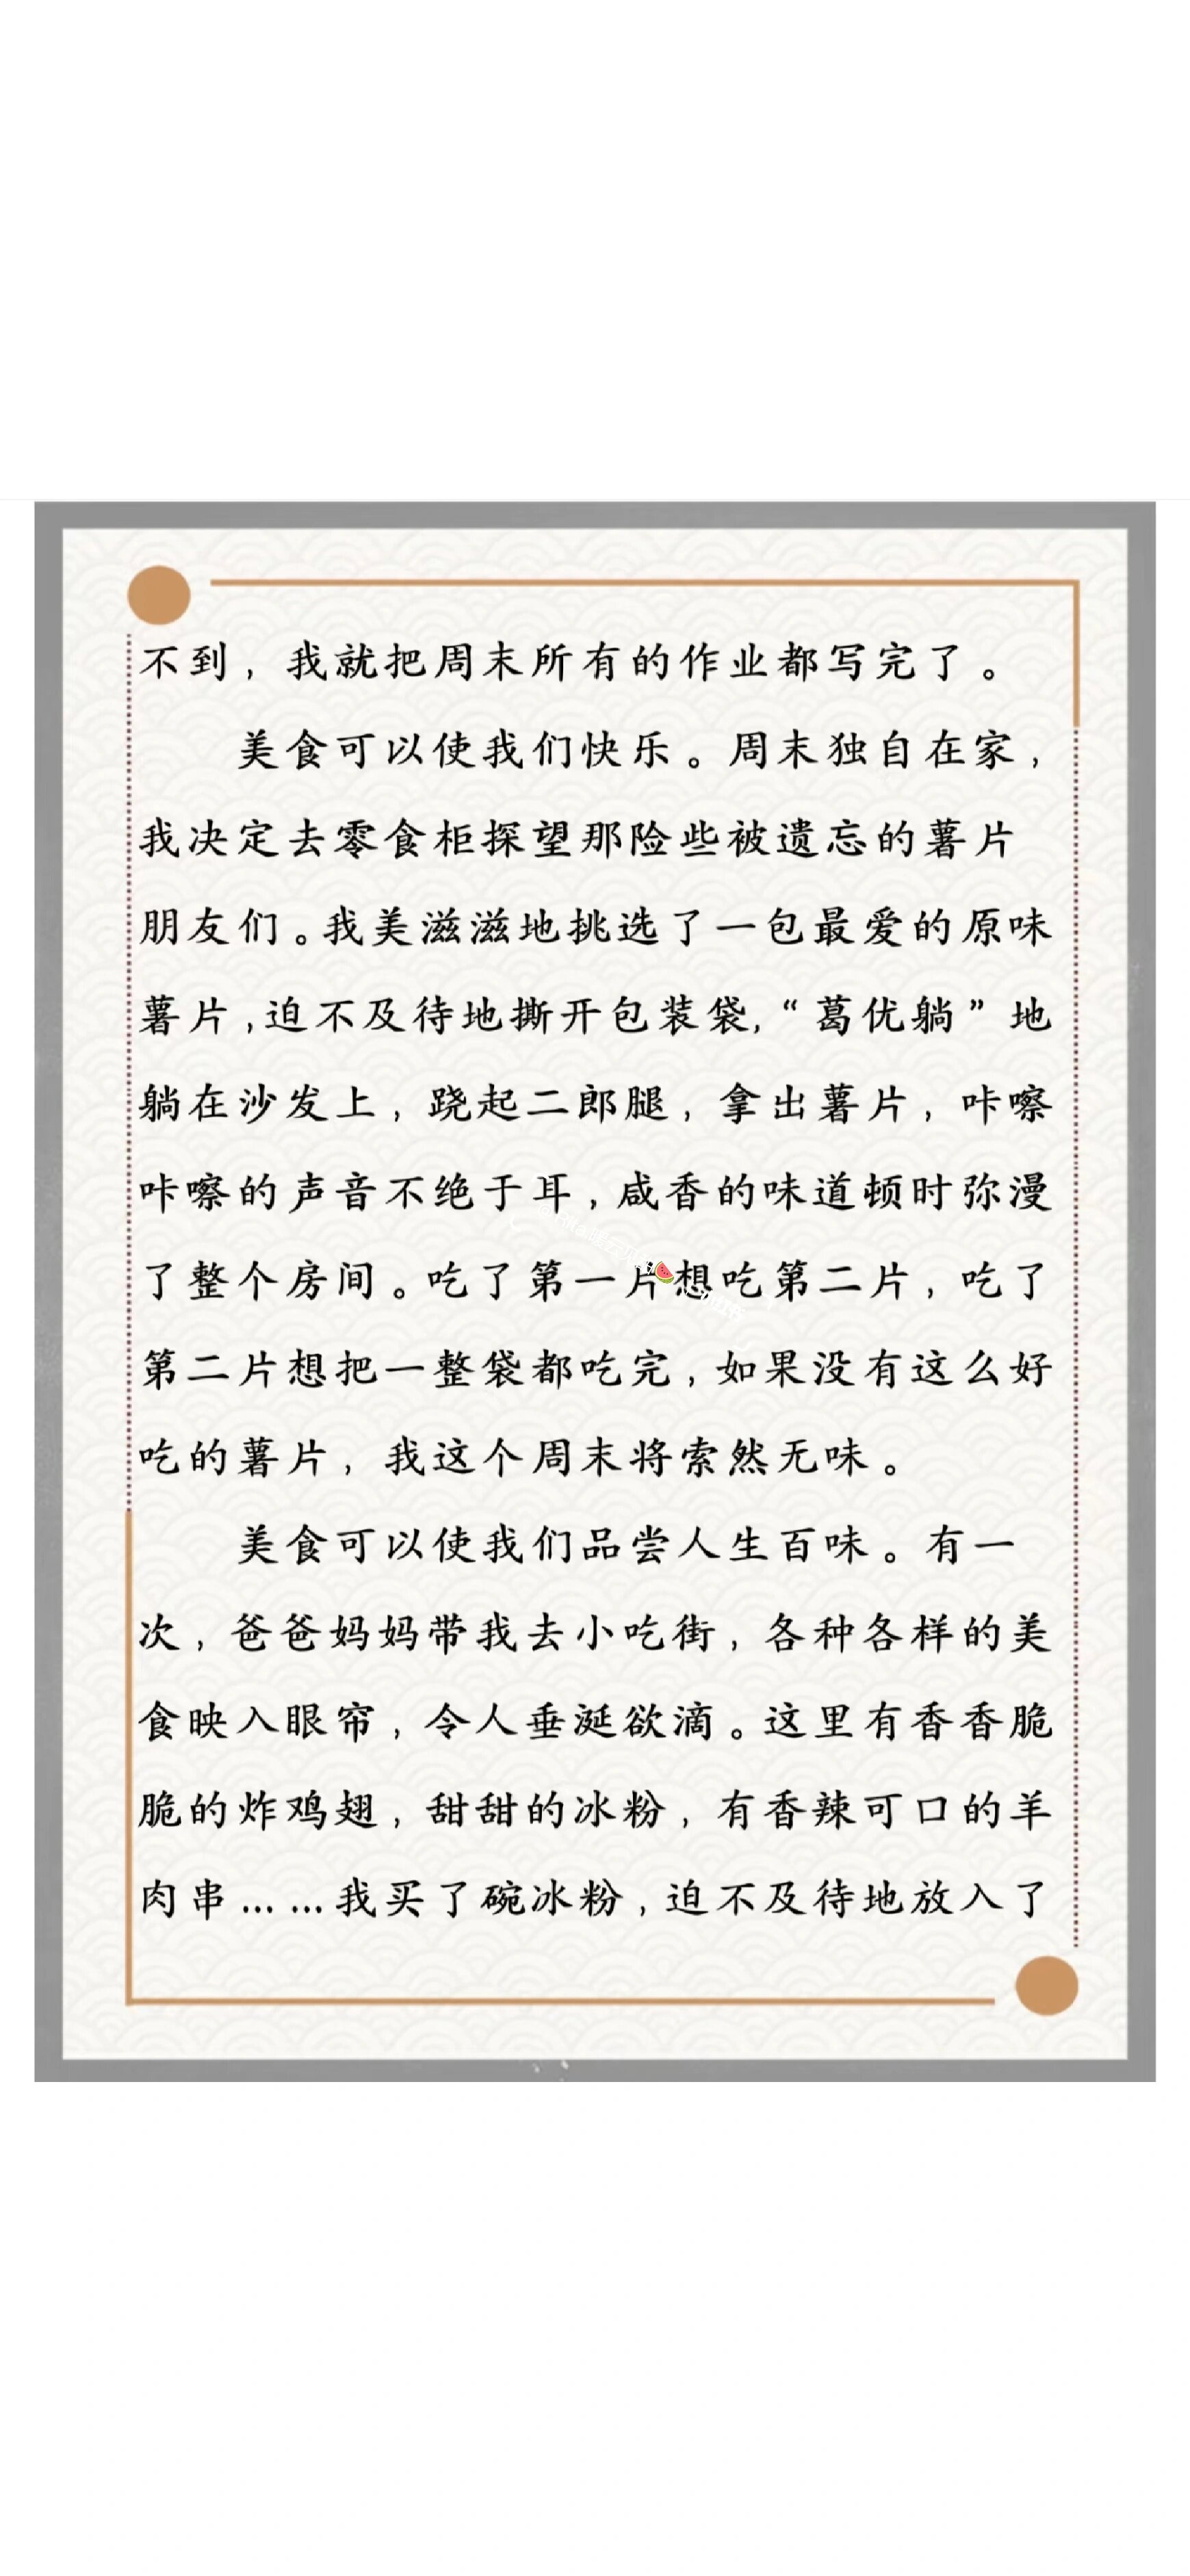 不到，我就把周末所有的作业都写完了。
美食可以使我们快乐。周末独自在家，
我决定去零食柜探望那险些被遗忘的薯片
朋友们。我美滋滋地挑选了一包最爱的原味
薯片，迫不及待地撕开包装袋，“葛优躺”地
躺在沙发上，跷起二郎腿，拿出薯片，咔嚓
咔嚓的声音不绝于耳，咸香的味道顿时弥漫
了整个房间。吃了第一片想吃第二片，吃了
第二片想把一整袋都吃完，如果没有这么好
吃的薯片，我这个周末将索然无味。
美食可以使我们品尝人生百味。有一
次，爸爸妈妈带我去小吃街，各种各样的美
食映入眼帘，令人垂涎欲滴。这里有香香脆
脆的炸鸡翅，甜甜的冰粉，有香辣可口的羊
肉串……我买了碗冰粉，迫不及待地放入了